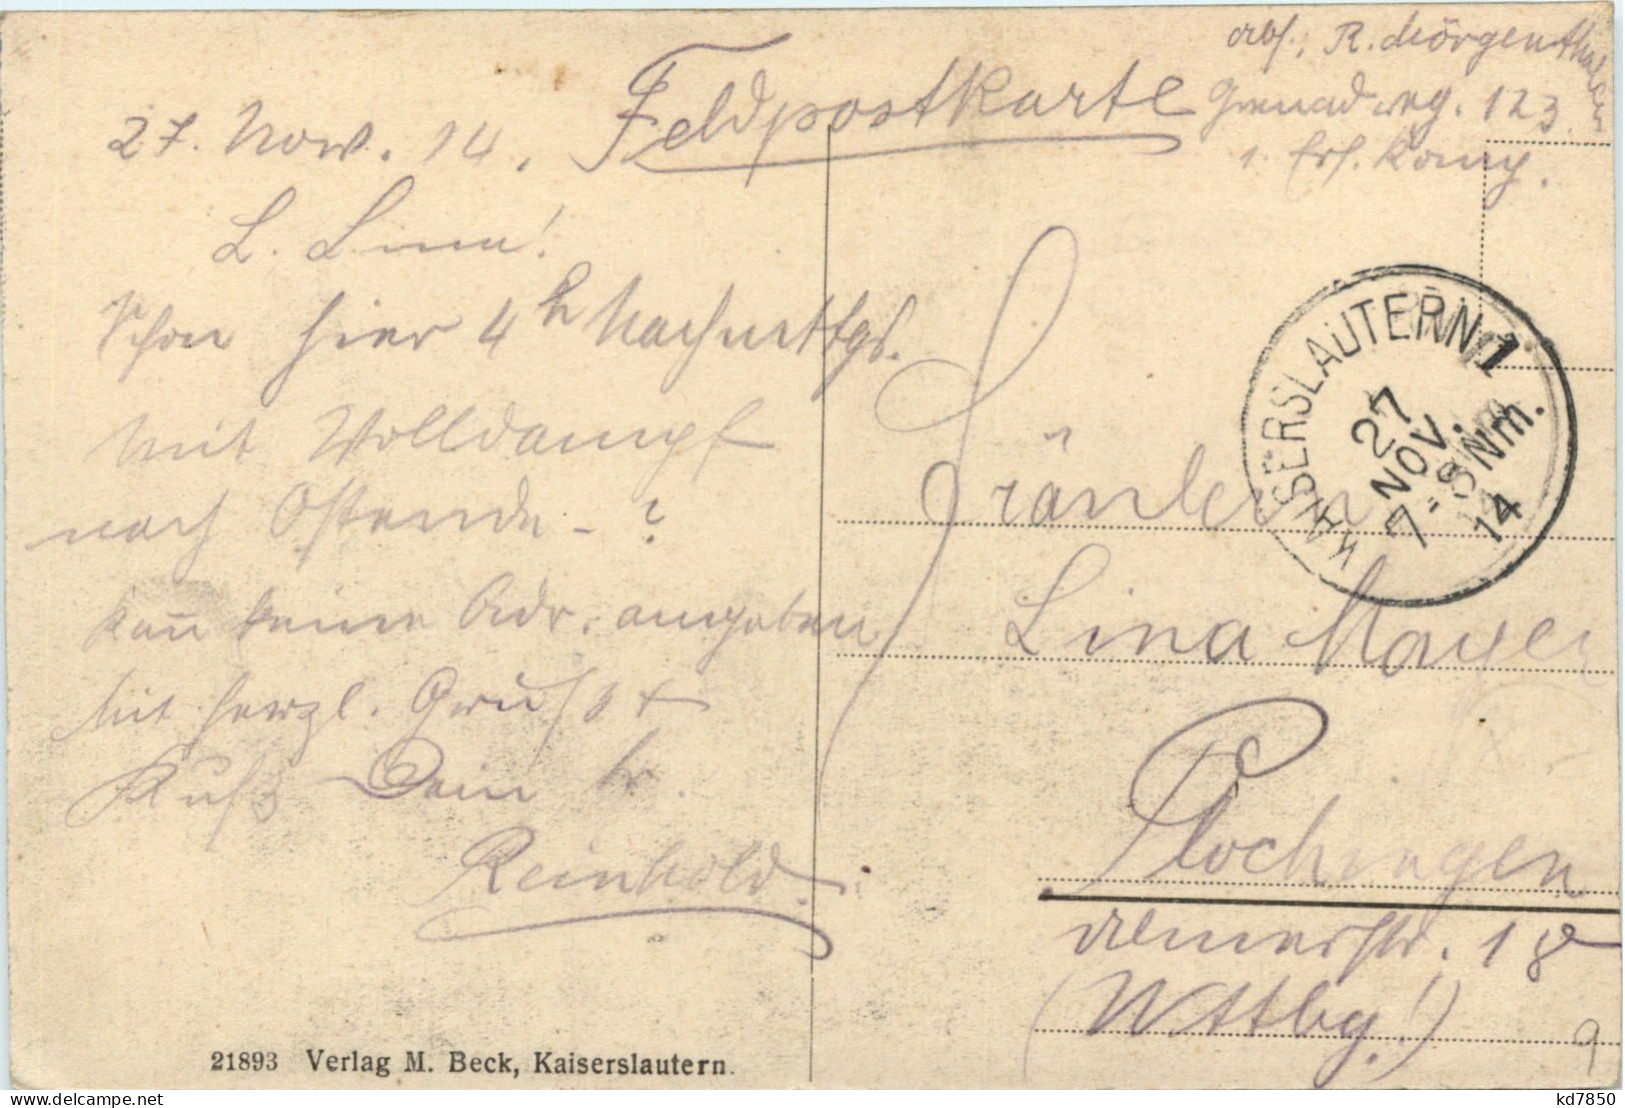 Feldpostkarte
Abs.: R. Mörgenthaler
Grenad. Reg. 123.
1. Ers. Komp.
27. Nov. 14.
L. Lina!
Schon hier 4h Nachmittgs.
mit Volldampf
nach Ostende - ?
kan̄ keine Adr. angeben
Mit herzl. Gruß +
Kuß Dein br.
Reinhold.
KAISERSLAUTERN 1
27
NOV.
7-8 Nm.
14
Fräulein
Lina Mayer
Plochingen
18
(Wttbg.!)
9
21893 Verlag M. Beck, Kaiserslautern.
kd7850